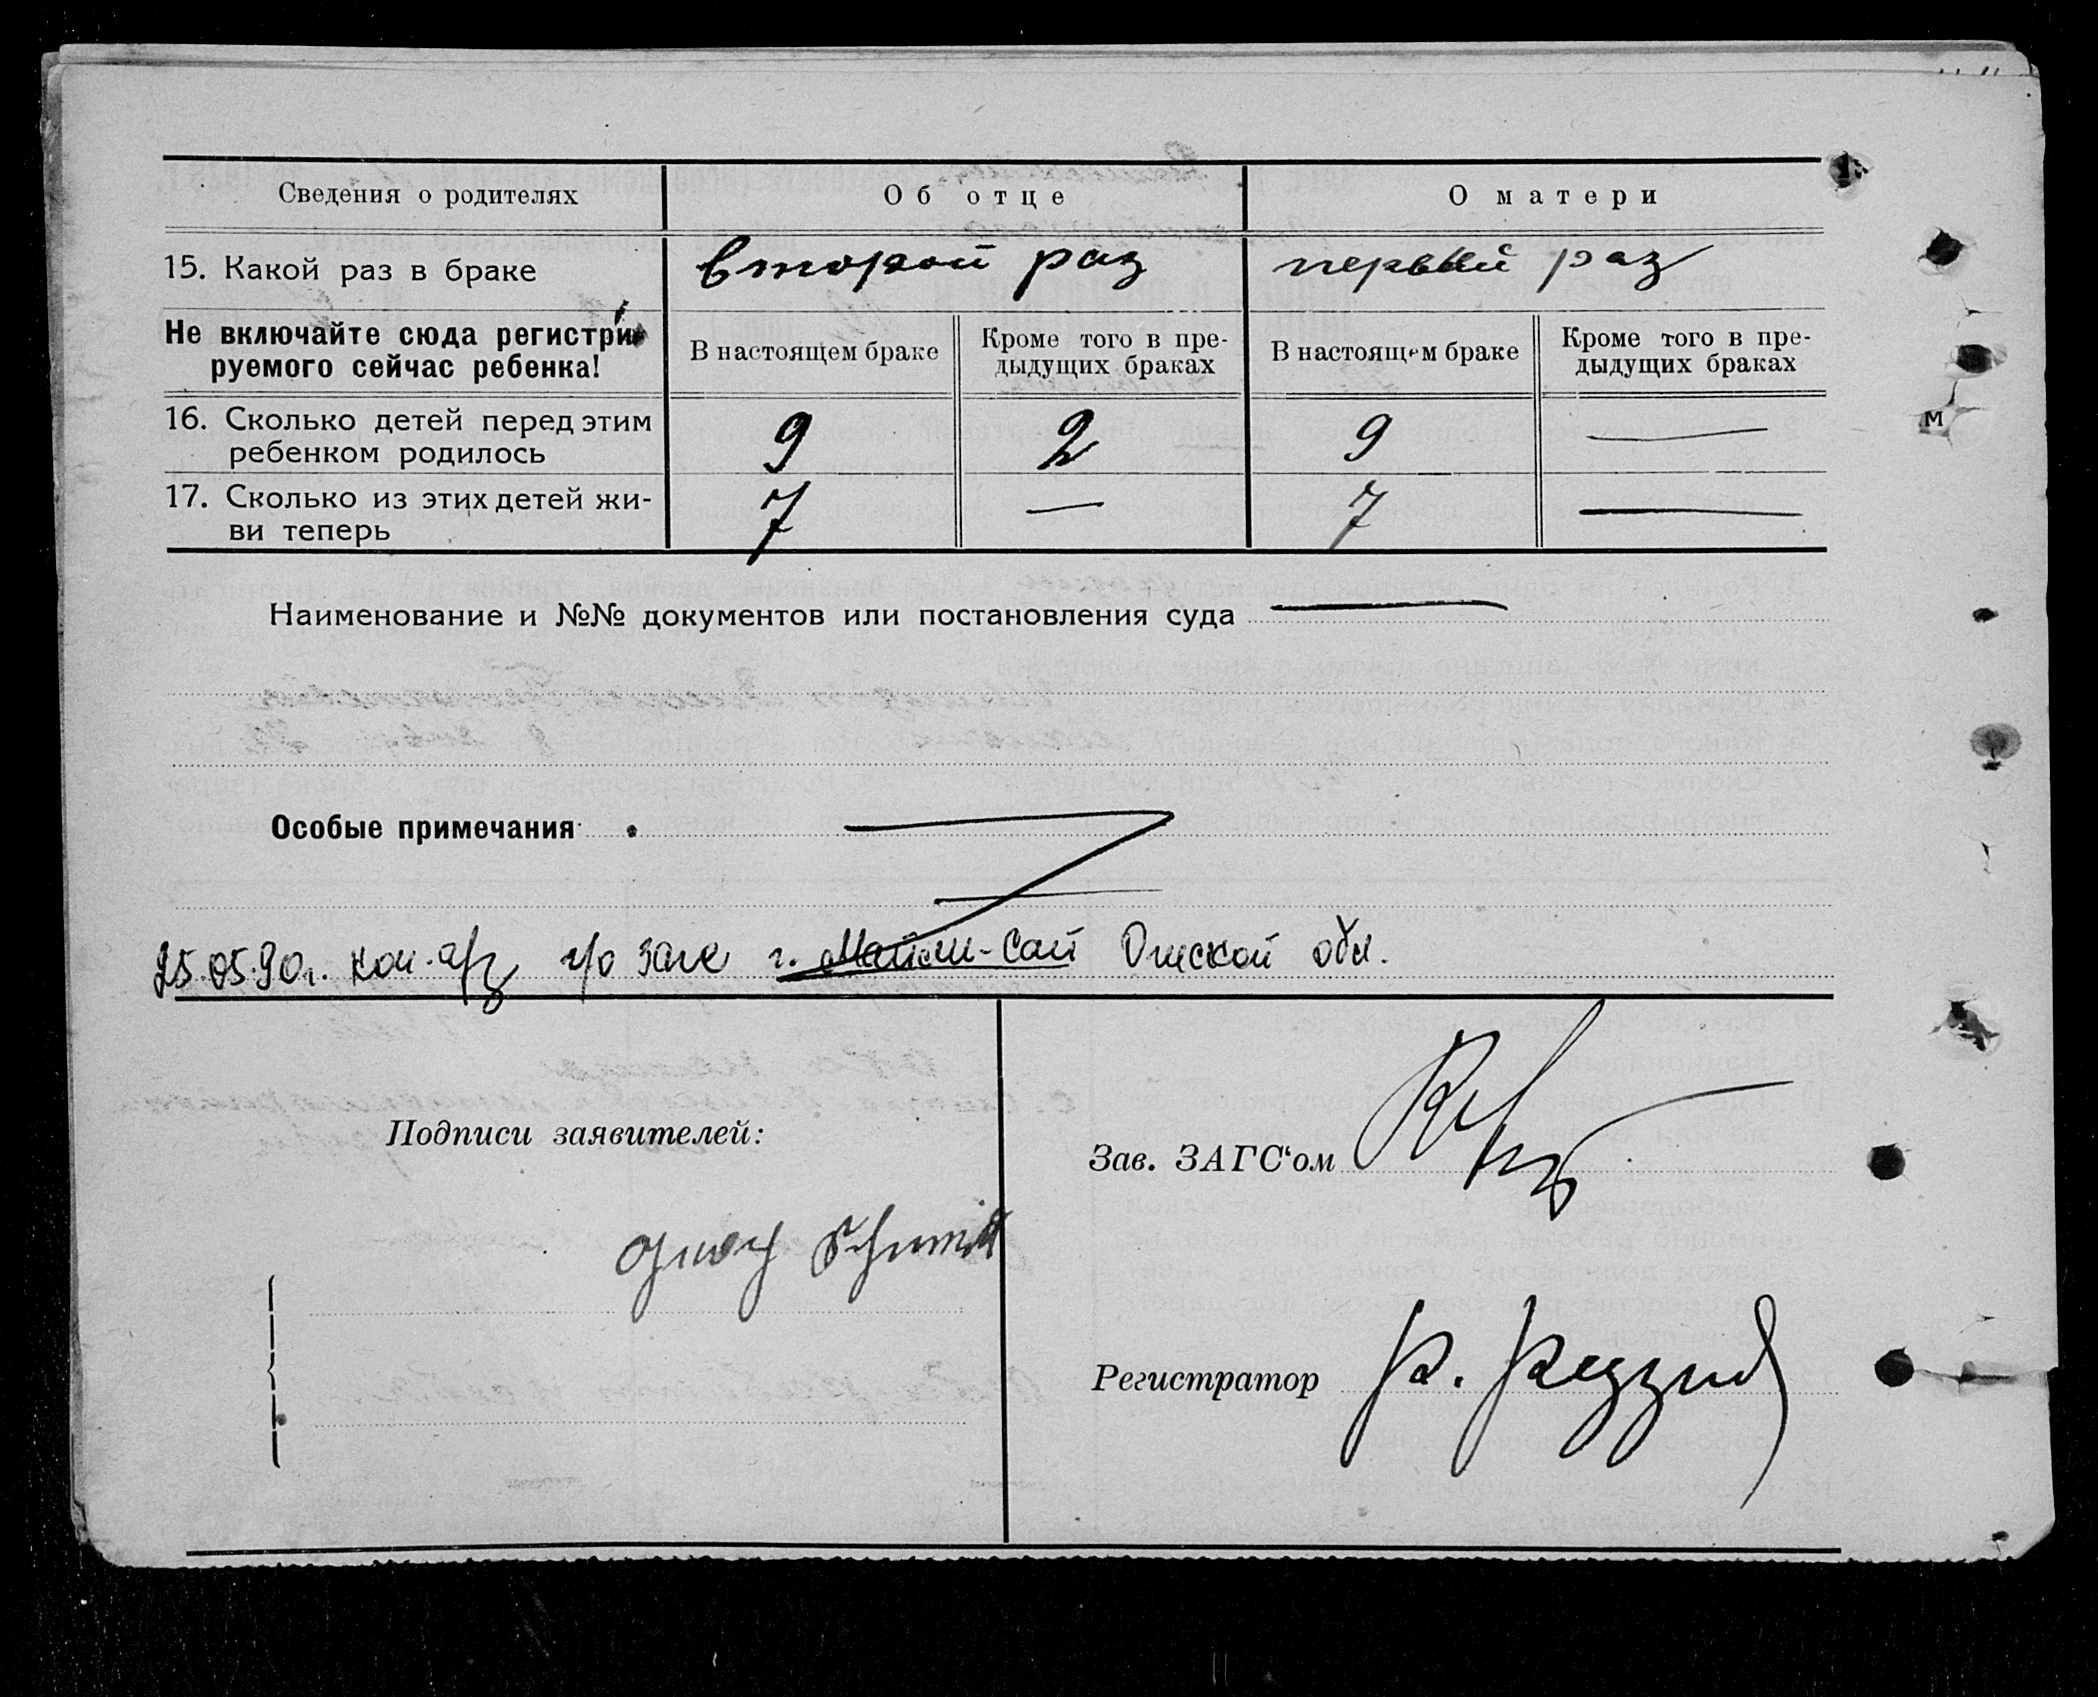 Сведения о родителях Об отце О матери
15. Какой раз в браке второй раз первый раз
Не включайте сюда регистри-
руемого сейчас ребенка!
В настоящем браке
Кроме того в пре-
дыдущих браках
В настоящем браке
Кроме того в пре-
дыдущих браках
16. Сколько детей перед этим
ребенком родилось
9 2 9 —
17. Сколько из этих детей жи-
ви теперь
7 — 7 —
Наименование и №№ документов или постановления суда —
Особые примечания
25.05.90г. коп. а/з г/о загс г. Майли-Сай Ошской обл.
Подписи заявителей:
Schmidt
Зав. ЗАГС‘ом
Регистратор
м